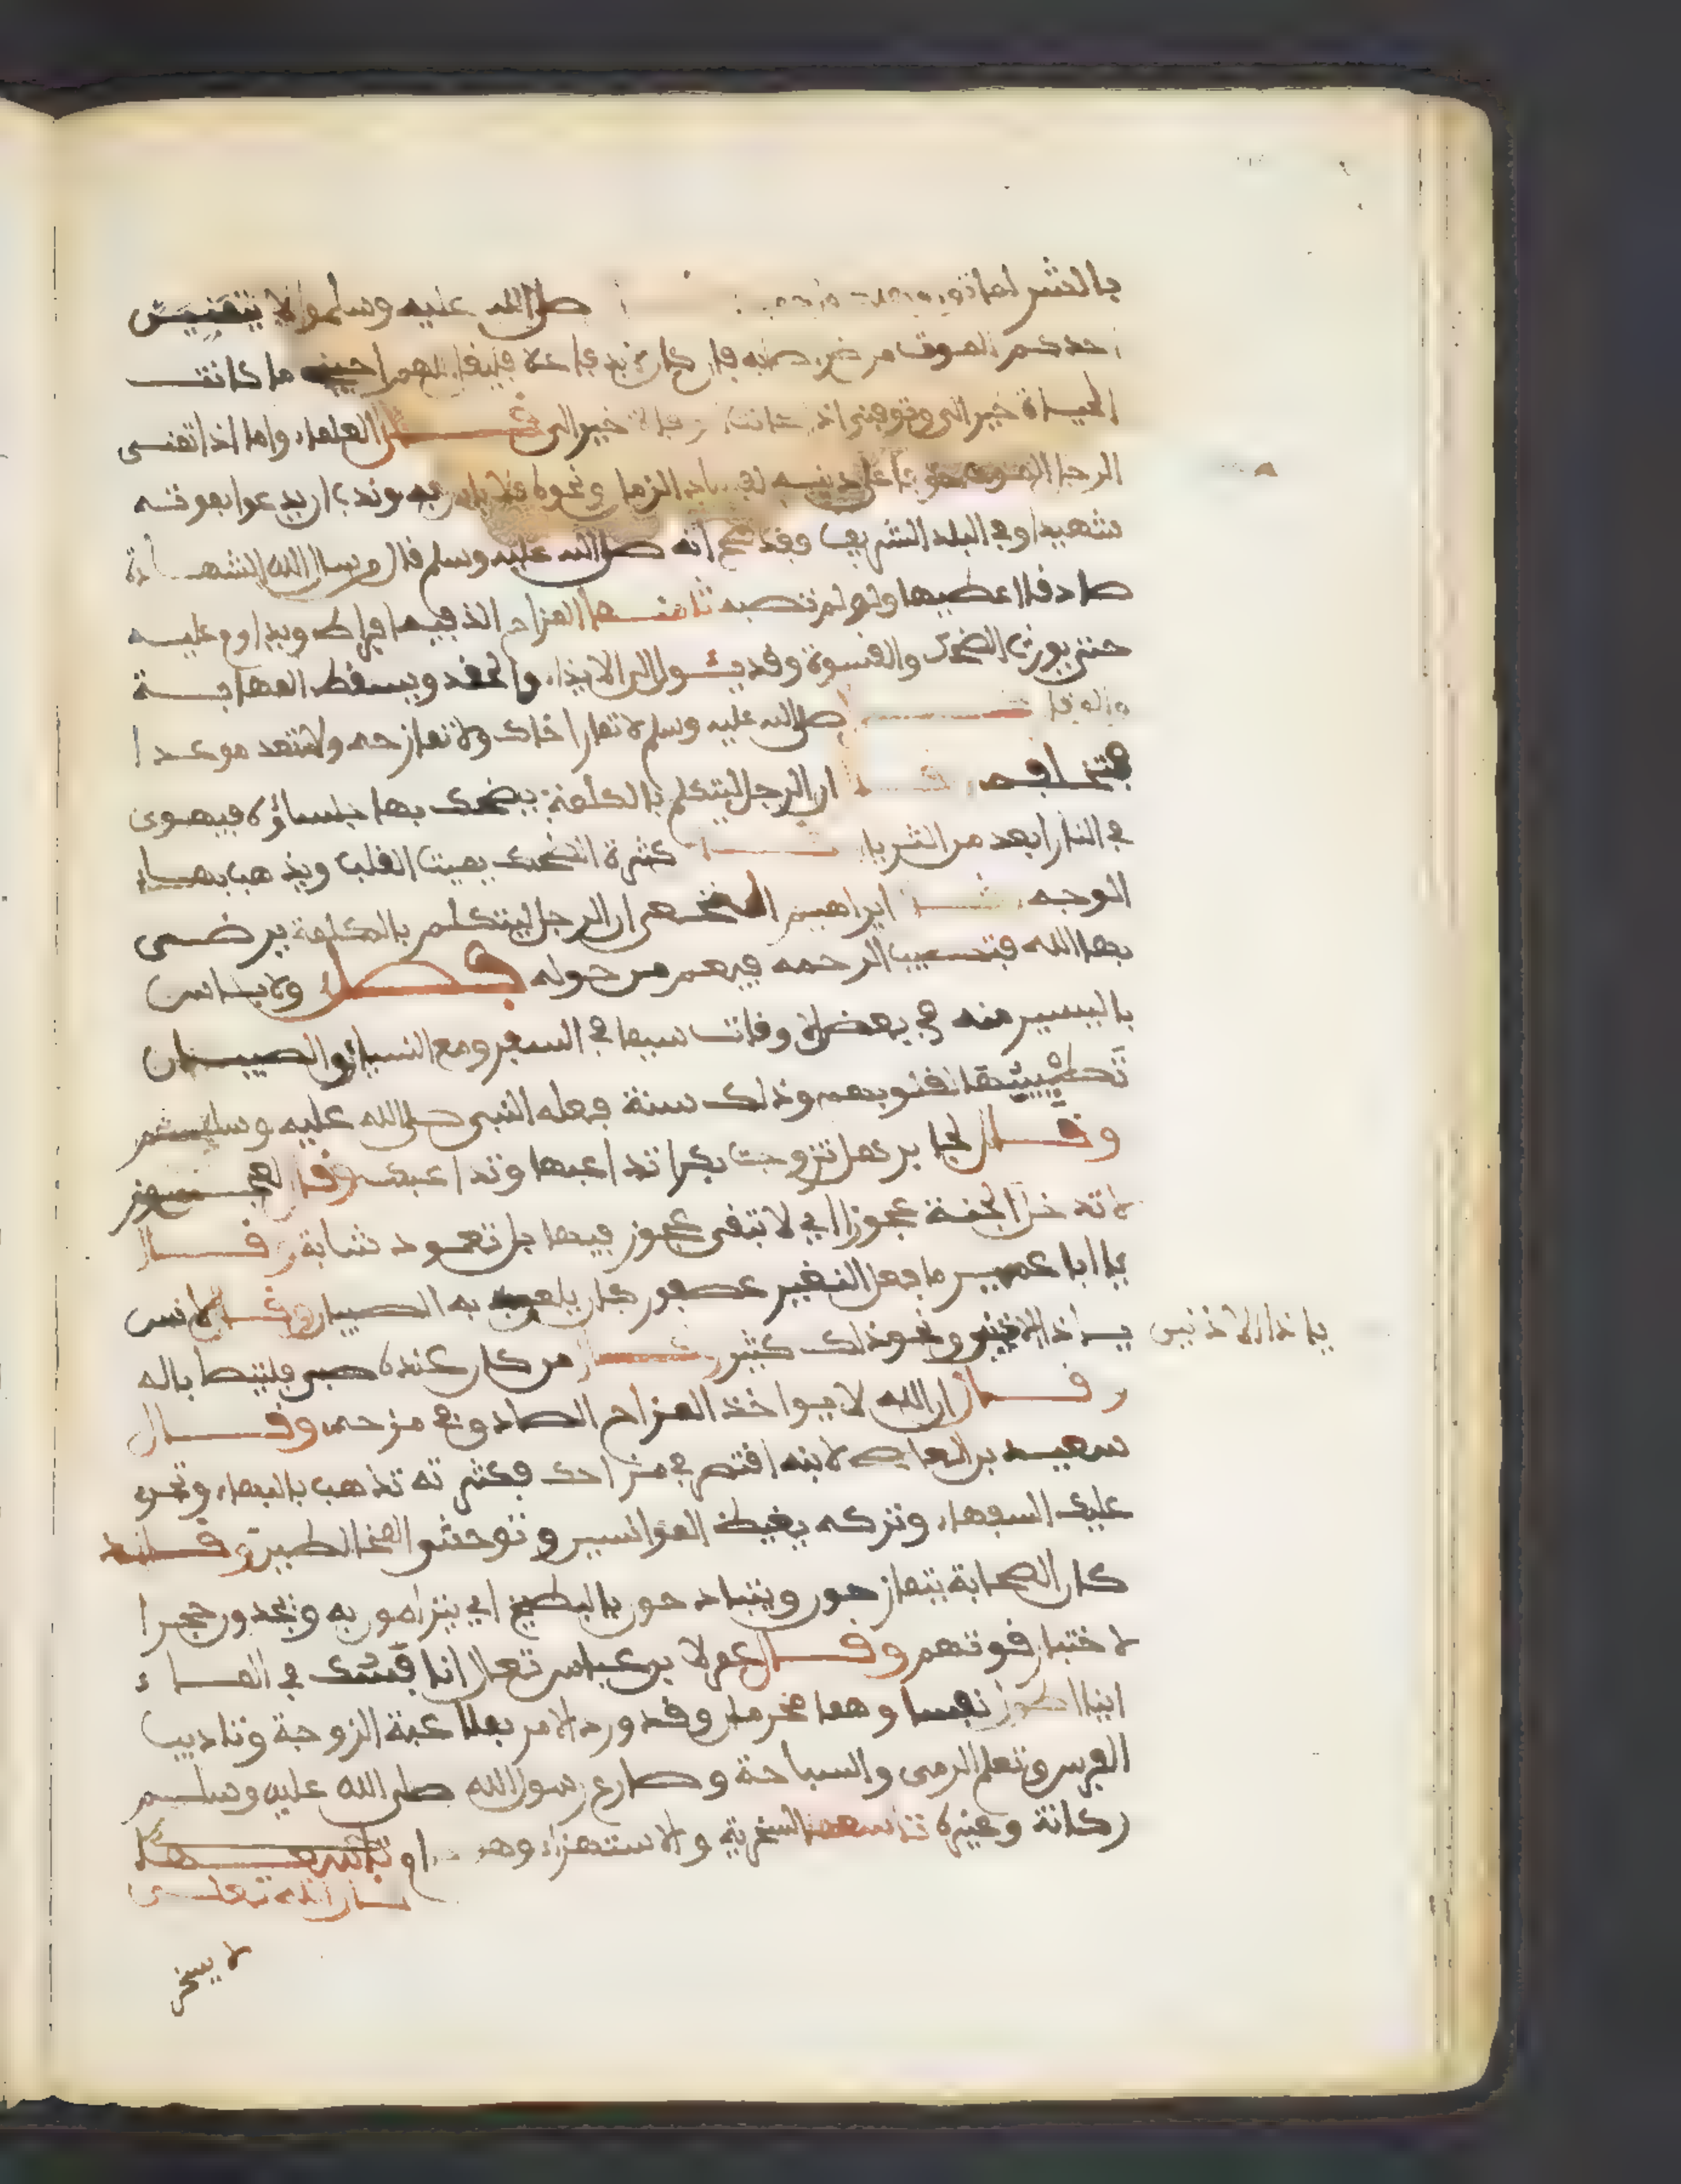 بالشر صلى الله عليه وسلم ولا يتمنين
احدكم الموت من ضر فان كان فاعلا فليقل اللهم احينى ما كانت
الحياة خيرا لى وتوفنى اذا كانت خيرا لى قال العلماء واما اذا تمنى
الرجل الموت خوفا على دينه لفساد الزمان ونحوه فلا باس به وندب ان يدعوا بموته
شهيدا وفي البلد الشريف وقد صح انه صلى الله عليه وسلم قال من سال الله الشهادة
صادقا اعطيها ولو لم تصبه ثامنها المزاح الذ فيه افراط ويداوم عليه
حتى يورث الضحك والقسوة وقد يئول الى الايذاء والحقد ويسقط المهابة
والوقار صلى الله عليه وسلم لا تمار اخاك ولا تمازحه ولا تعد موعدا
فتخلفه ان الرجل ليتكلم بالكلمة يضحك بها جلساؤه فيهوى
في النار ابعد من الثريا كثرة الضحك يميت القلب ويذهب بهاء
الوجه ابراهيم النخعى ان الرجل ليتكلم بالكلمة يرضى
بها الله فتصيب الرحمه فيعم من حوله فصل ولا باس
باليسير منه في بعض الاوقات سيما في السفر ومع النساء والصبيان
تطييبا لقلوبهم وذلك سنة فعله النبى صلى الله عليه وسلم
وقال لجابر هل تزوجت بكرا تداعبها وتداعبك وقال لعجوز
لا تدخل الجنة عجوز اي لا تبقى عجوز فيها بل تعود شابة وقال
يا ابا عمير ما فعل النغير عصفور كان يلعب به الصبيان وقال لانس
يا ذا الاذنين ونحو ذلك كثير من كان عنده صبي فليتصاب له
يا ذا الاذنين
وقال ان الله لا يواخذ المزاح الصادق في مزحه وقال
سعيد بن العاص لابنه اقتصر في مزاحك فكثرته تذهب بالبهاء وتجرى
عليك السفهاء وتركه يغيظ الموانسين وتوحش المخالطين وقد
كان الصحابة يتمازحون ويتبادحون بالبطيخ اي يترامون به ويجذون حجرا
لاختبار قوتهم وقال عمر لابن عباس تعال انافسك في الماء
اينا اطول نفسا وهما محرمان وقد ورد الامر بملاعبة الزوجة وتاديب
الفرس وتعلم الرمى والسباحة وصارع رسول الله صلى الله عليه وسلم
ركانة وغيره تاسعها السخرية والاستهزاء وهو حرام
قال الله تعلى
لا يسخر